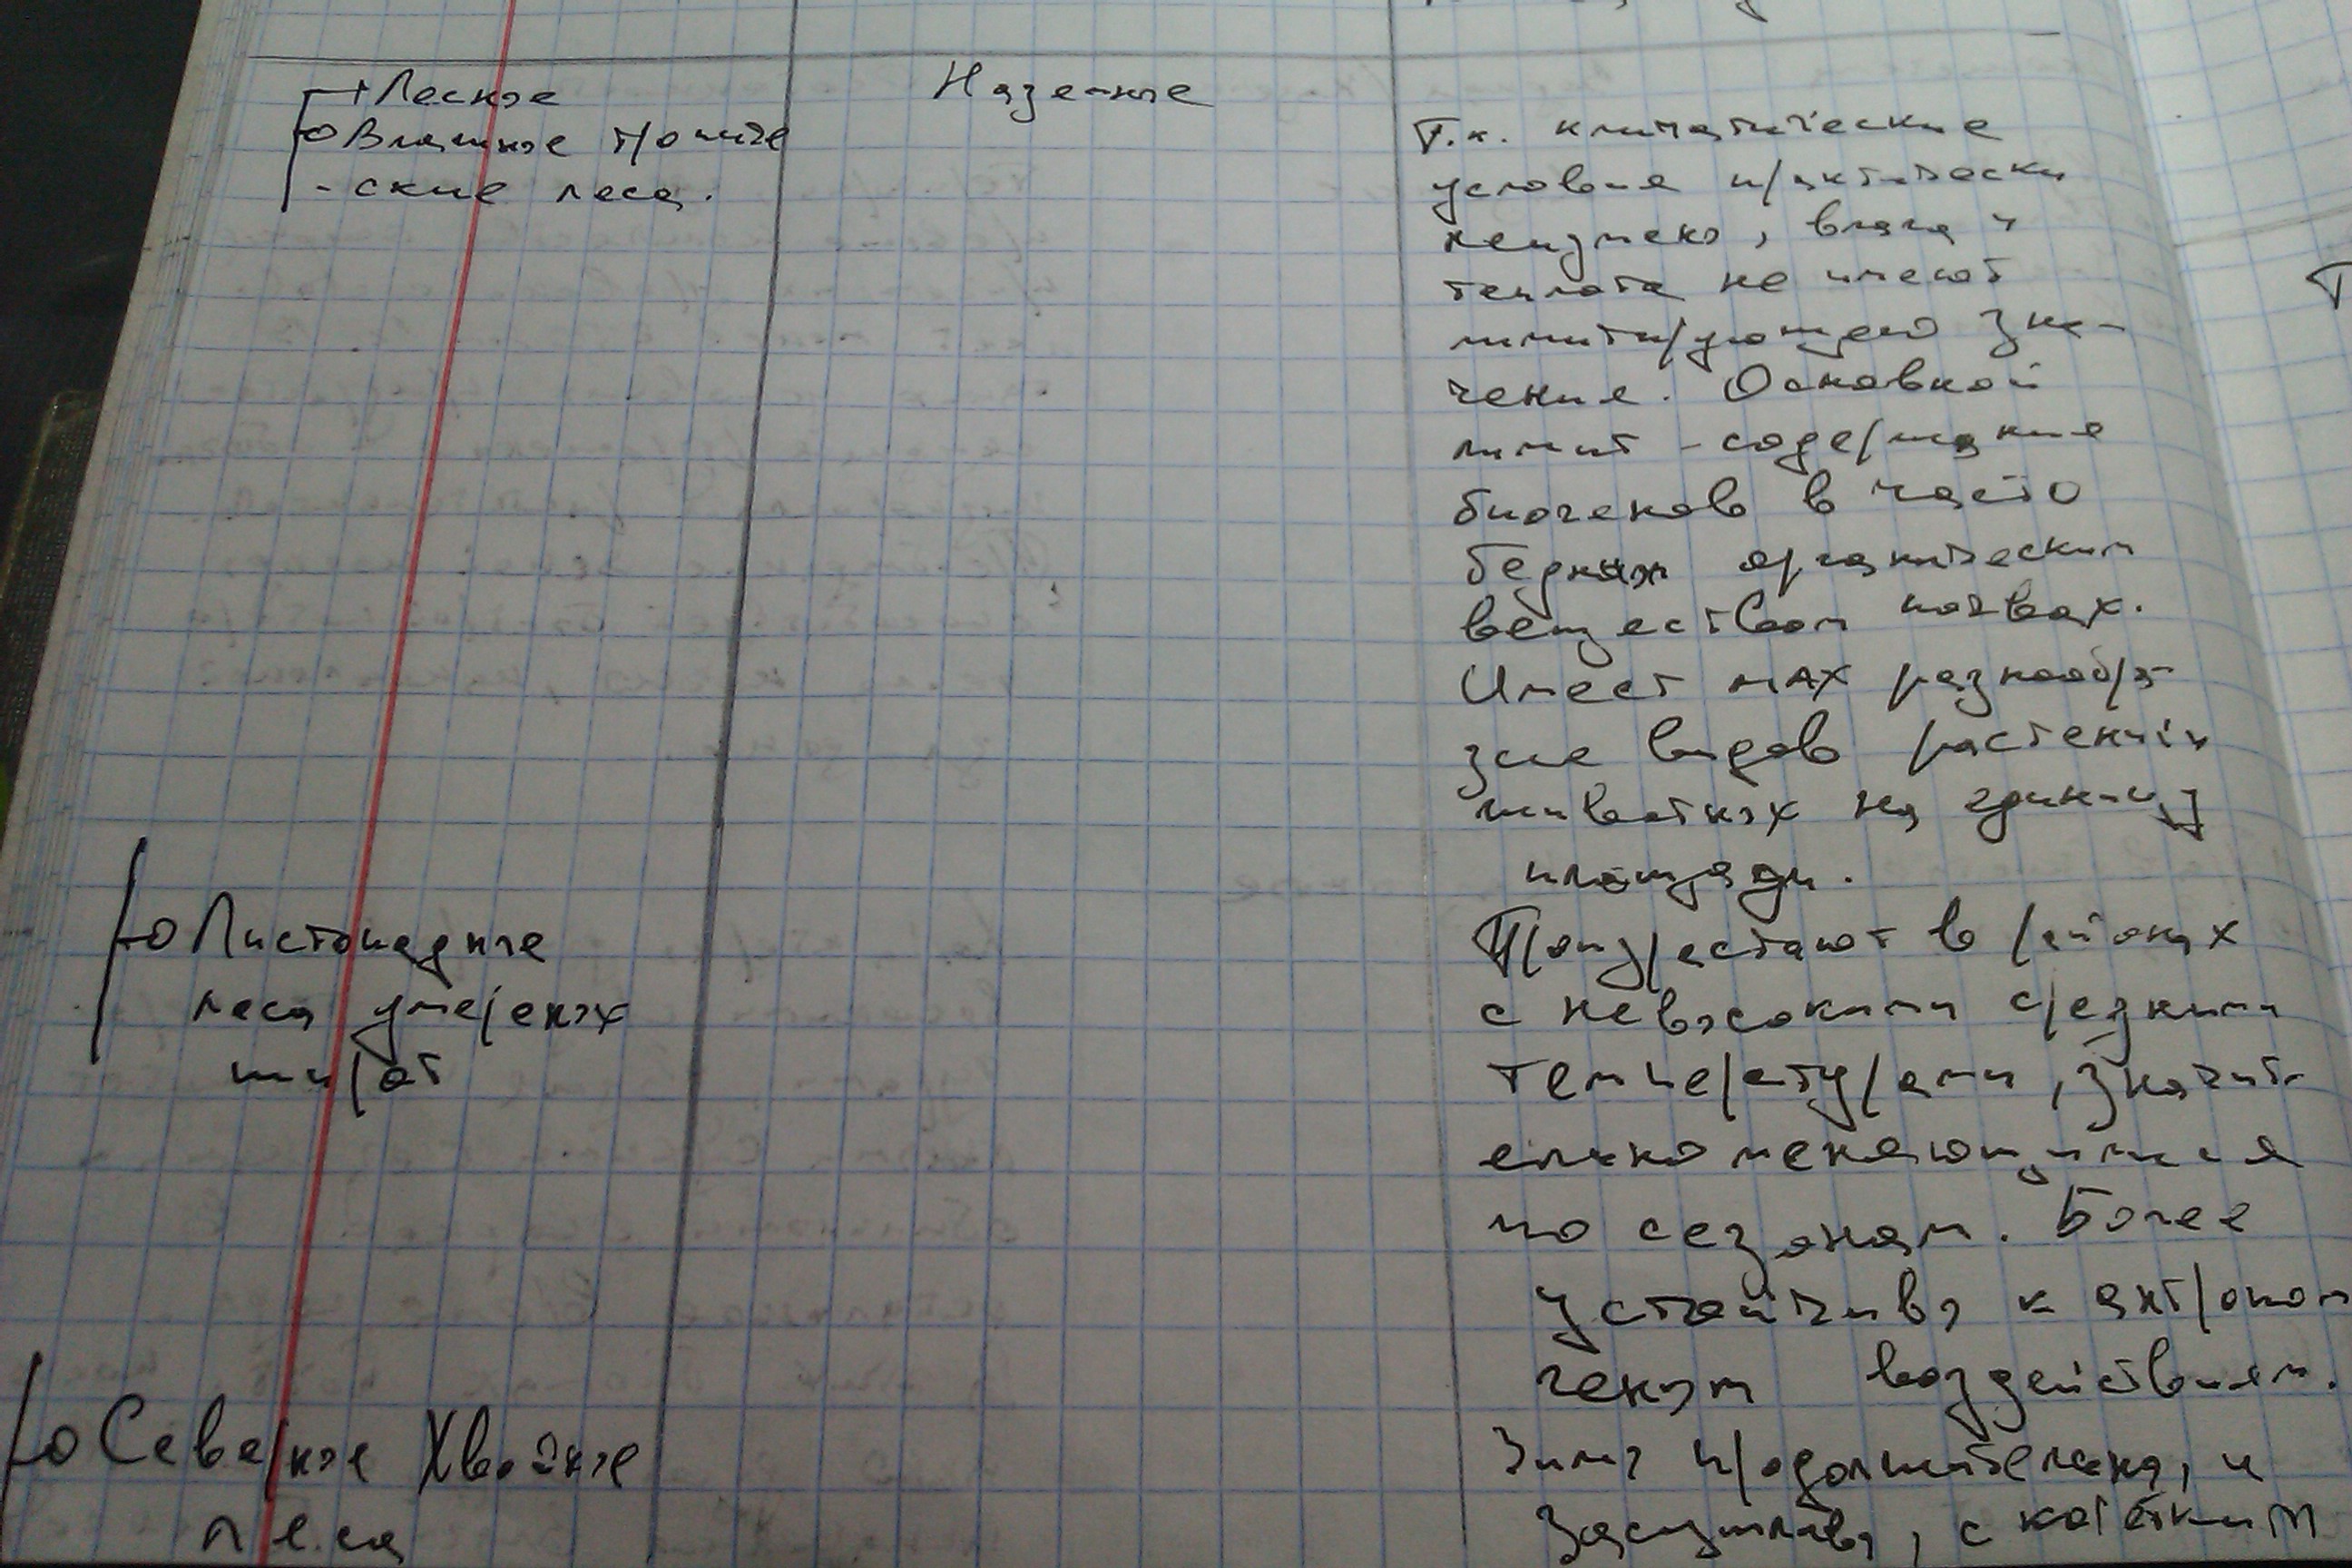 Лесные
Влажные тропиче
-ские леса.
Наземные
Т.к. климатические
условия практически
неизмены, влага и
теплота не имеют
лимитирующего зна-
чения. Основной
лимит - содержание
биогенов в часто
бедных органическим
веществом почвах.
Имеет мах разнообра-
зие видов растений и
животных на единицу
площади.
Листопадные
леса умереных
широт
Произрастают в районах
с невысокими средними
температурами, значит-
ельно меняющимися
по сезонам. Более
устойчивы к антропог
генным воздействиям.
Северные Хвойные
леса
Зимы продолжительны, и
засушливы, с коротким